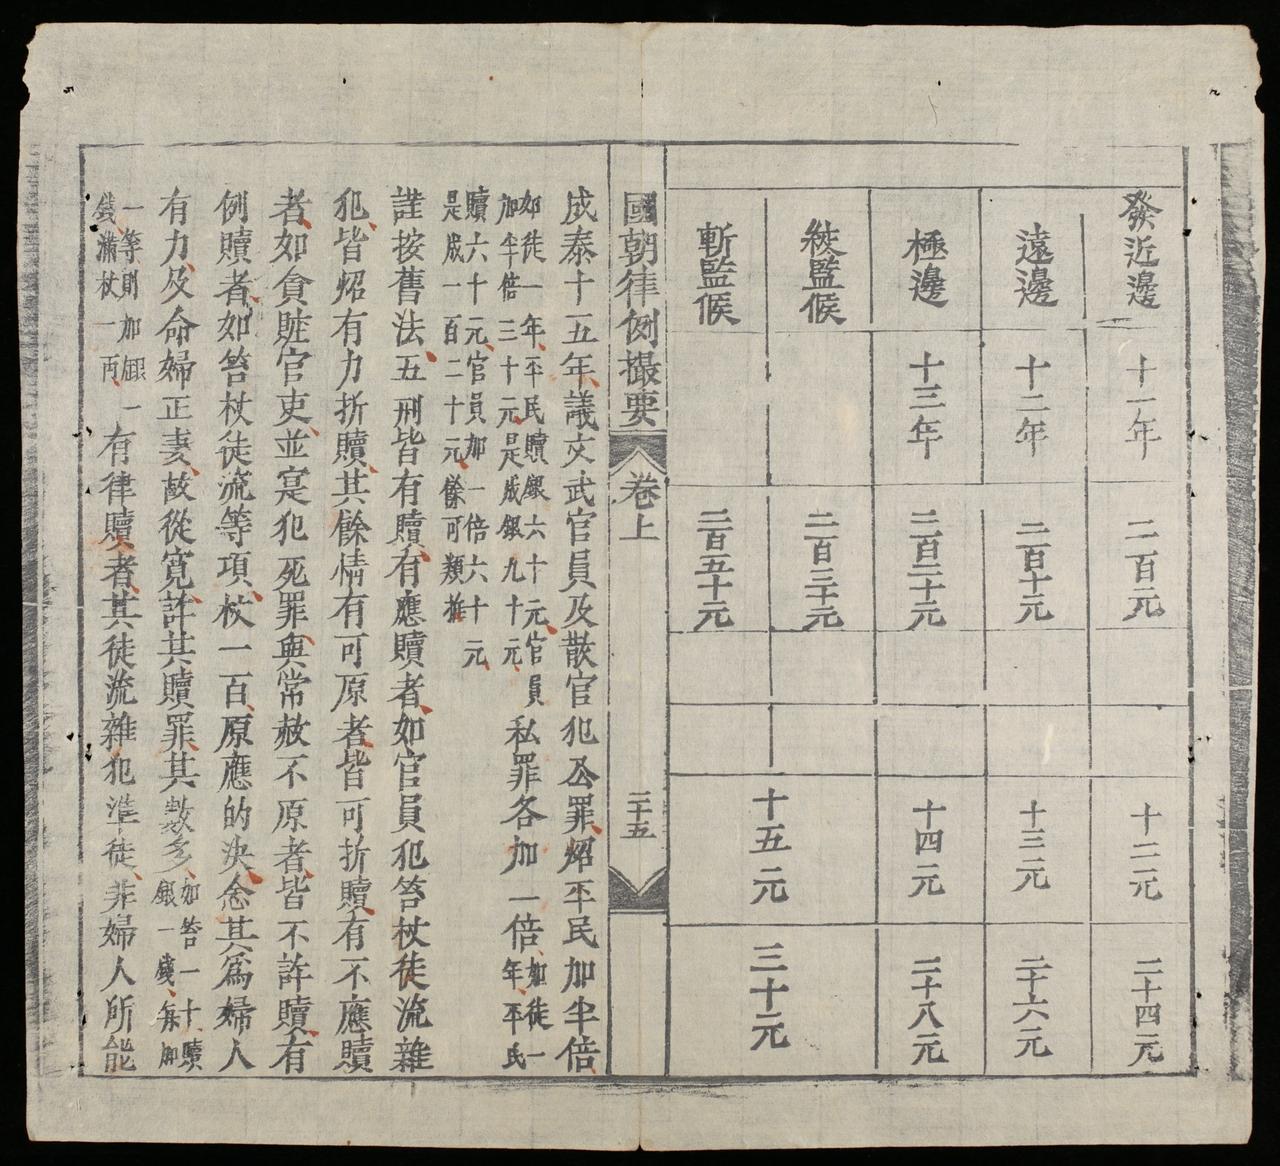 發近邊 十一年 二百元 十二元 二十四元
遠邊 十二年 二百十元 十三元 二十六元
極邊 十三年 二百二十元 十四元 二十八元
絞監候 二百三十元
斬監候 二百五十元
十五元 三十元
國朝律例撮要 卷上 三十五
成泰十五年議文武官員及散官犯公罪炤平民加半倍
如徒一年平民贖銀六十元官員
加半倍三十元是成銀九十元
私罪各加一倍
如徒一
年平民
贖六十元官員加一倍六十元
是成一百二十元餘可類推
謹按舊法五刑皆有贖有應贖者如官員犯笞杖徒流雜
犯皆炤有力折贖其餘情有可原者皆可折贖有不應贖
者如貪贓官吏並寔犯死罪與常赦不原者皆不許贖有
例贖者如笞杖徒流等項杖一百原應的決念其爲婦人
有力及命婦正妻故從寬許其贖罪其數多
如笞一十贖
銀一錢每加
一等則加銀一
錢滿杖一兩
有律贖者其徒流雜犯準徒非婦人所能